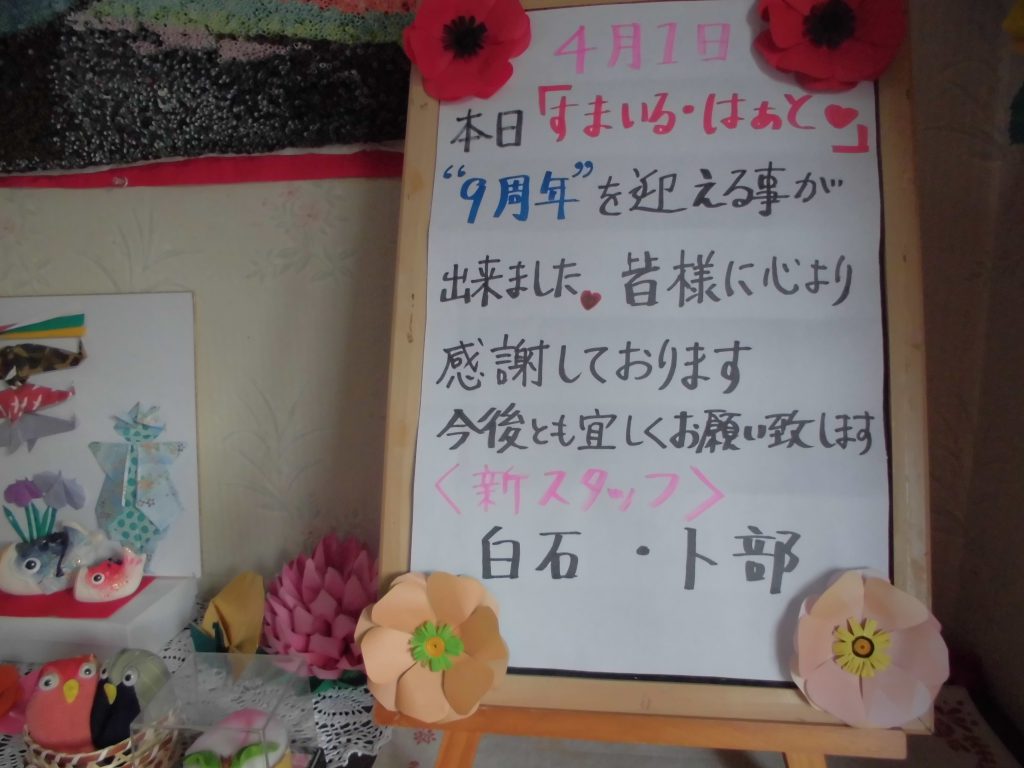 4月1日
本日「すまいる・はぁと♥」
“9周年”を迎える事が
出来ました♥皆様に心より
感謝しております
今後とも宜しくお願い致します
〈新スタッフ〉
白石・卜部